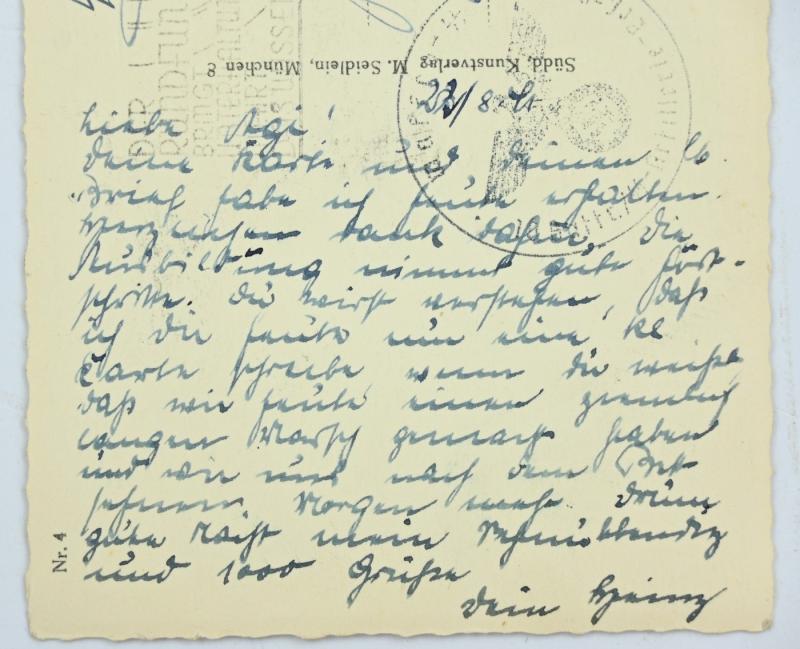 Südd. Kunstverlag M. Seidlein, München 8
DER RUNDFUNK
BRINGT
UNTERHALTUNG
23/8. 41
Liebe Agi!
Deine Karte und Deinen lb.
Brief habe ich heute erhalten.
Herzlichen Dank dafür, Die
Ausbildung nimmt gute Fort-
schritte. Du wirst verstehen, daß
ich Dir heute nur eine kl
Karte schreibe wenn du weißt
daß wir heute einen ziemlich
langen Marsch gemacht haben
und wir uns nach dem Bett
sehnen. Morgen mehr Drum
gute Nacht mein
und 1000 Grüße
Dein Heinz
Nr. 4